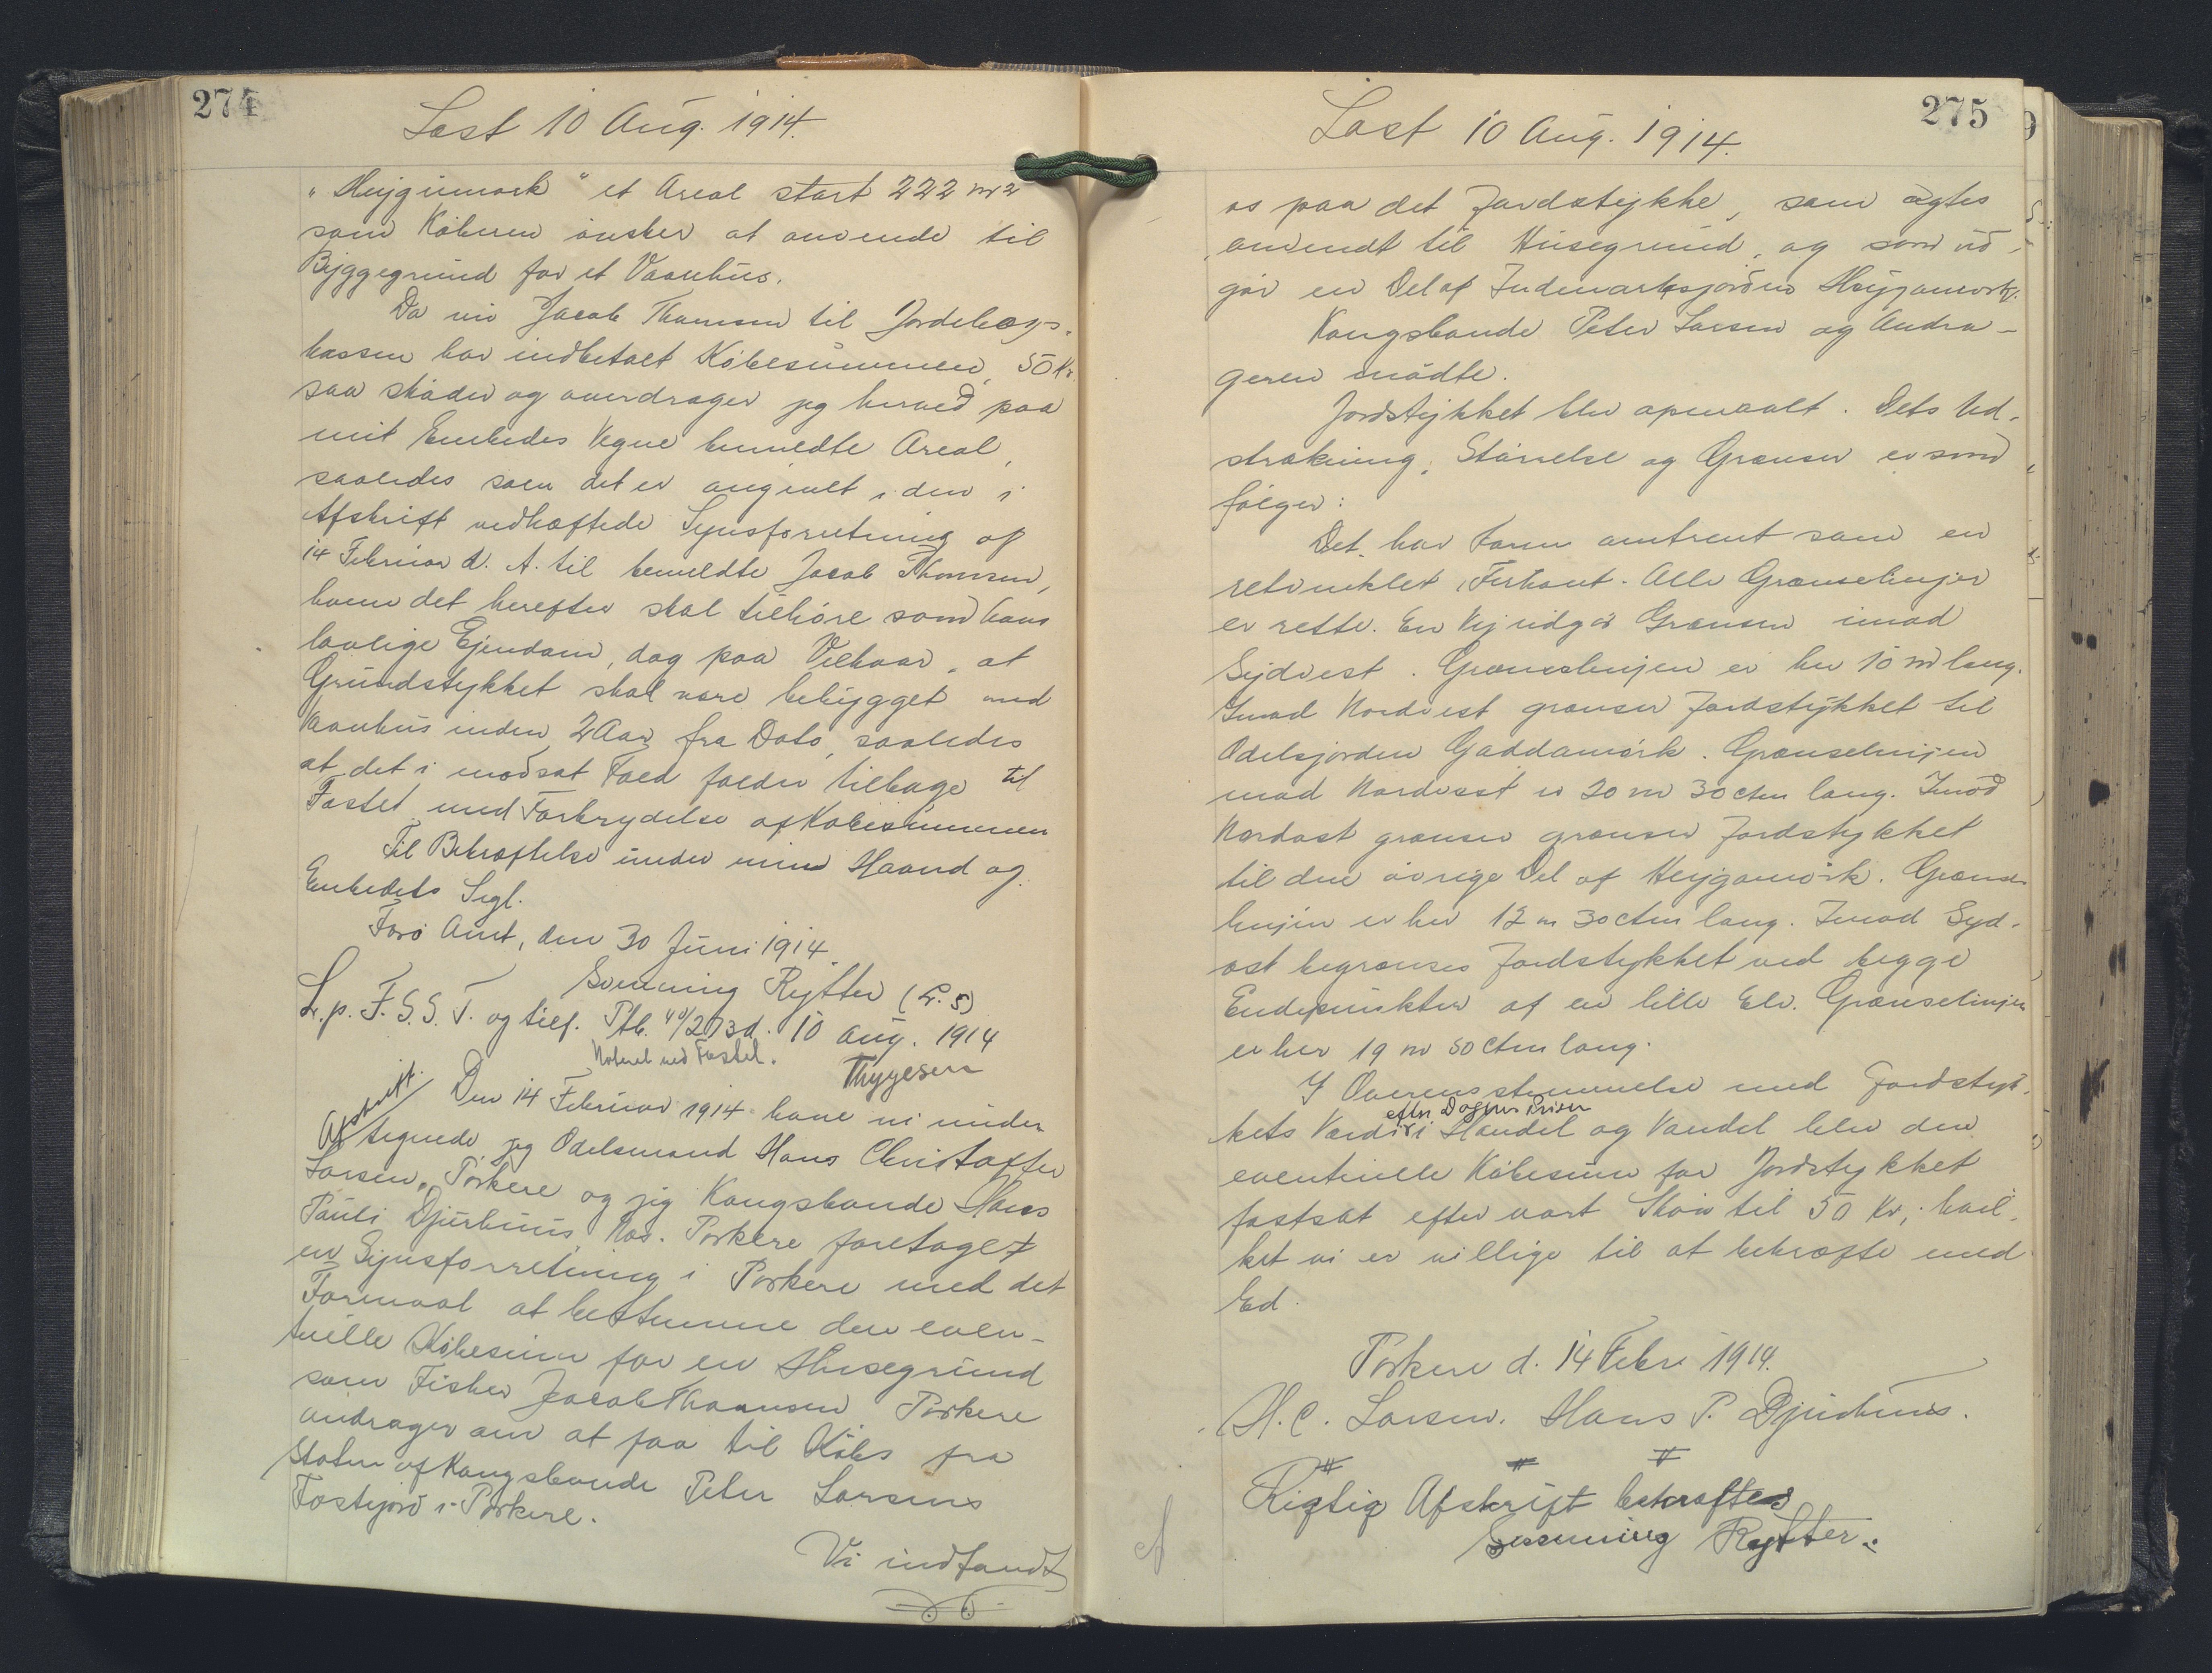 274
Læst 10 Aug. 1914.
"Heygumørk" et Areal stort 222 m2
som Køberen ønsker at anvende til
Byggegrund for et Vaanhus.
Da nu Jacob Thomsen til Jordebogs-
kassen har indbetalt Købesummen, 50 Kr.
saa skøder og overdrager jeg herved paa
mit Embedes Vegne bemeldte Areal,
saaledes som det er angivet i den i
Afskrift vedhæftede Synsforretning af
14 Februar d. A. til bemeldte Jacob Thomsen,
hvem det herefter skal tilhøre som hans
lovlige Ejendom, dog paa Vilkaar, at
Grundstykket skal være bebygget med
Vaanhus inden 2 Aar fra Dato, saaledes
at det i modsat Fald falder tilbage til
Fæstet med Forbrydelse af Købesummen
Til Bekræftelse under min Haand og
Embedets Segl.
Færø Amt, den 30 Juni 1914.
Svenning Rytter (L. S)
L. p. F. S. S. T. og tilf. Ptb. 40/273 d. 10 Aug. 1914
Noteret ved Fæstet.
Thygesen
Afskrift.
Den 14 Februar 1914 have vi under
tegnede, jeg Odelsmand Hans Christoffer
Larsen, Porkere og jeg Kongsbonde Hans
Pauli Djurhuus, Nes. Porkere foretaget
en Synsforretning i Porkere med det
Formaal at bestemme den even-
tuelle Købesum for en Husegrund
som Fisker Jacob Thomsen Porkere
andrager om at faa til Købs fra
Staten af Kongsbonde Peter Larsens
Fæstejord i Porkere.
Vi indfandt
275
Læst 10 Aug. 1914.
os paa det Jordstykke, som agtes
anvendt til Husegrund, og som ud-
gør en Del af Indmarksjorden Heygamørk.
Kongsbonde Peter Larsen og Andra-
geren mødte.
Jordstykket blev opmaalt. Dets Ud-
strækning, Størrelse og Grænser er som
følger:
Det har Form omtrent som en
retvinklet Firkant. Alle Grænselinjer
er rette. En Vej udgør Grænsen imod
Sydvest. Grænselinjen er her 10 m lang.
Imod Nordvest grænser Jordstykket til
Odelsjorden Gaddamørk. Grænselinjen
mod Nordvest er 20 m 30 ctm lang. Imod
Nordøst grænser grænser Jordstykket
til den øvrige Del af Heygamørk. Grænse-
linjen er her 12 m 30 ctm lang. Imod Syd-
øst begrænses Jordstykket ved begge
Endepunkter af en lille Elv. Grænselinjen
er her 19 m 50 ctm lang.
I Overensstemmelse med Jordstyk-
efter Dagens Priser
kets Værdi i Handel og Vandel blev den
eventuelle Købesum for Jordstykket
fastsat efter vort Skøn til 50 Kr, hvil-
ket vi er villige til at bekræfte med
Ed.
Porkere d. 14 Febr 1914.
H. C. Larsen. Hans P. Djurhuus.
Rigtig Afskrift bekræftes
Svenning Rytter.